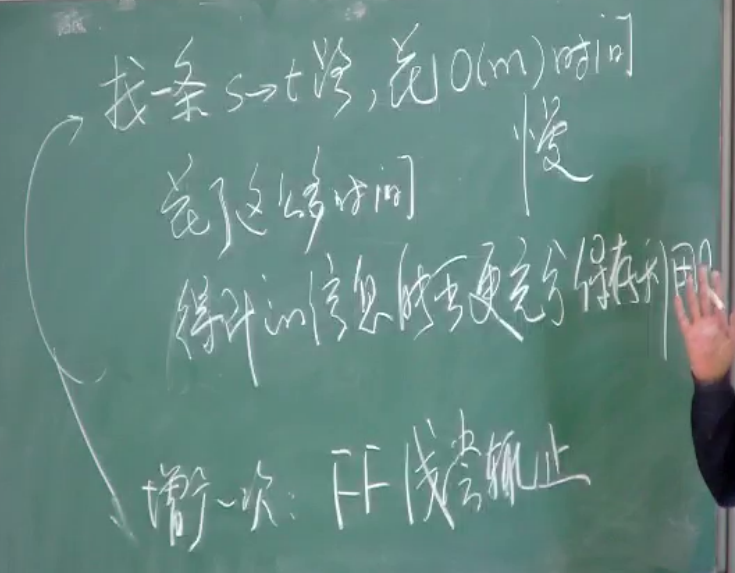 找一条 s→t 路,花 O(m) 时间
慢
花了这么多时间
得到的信息能否更充分保存利用
增广一次: FF 浅尝辄止